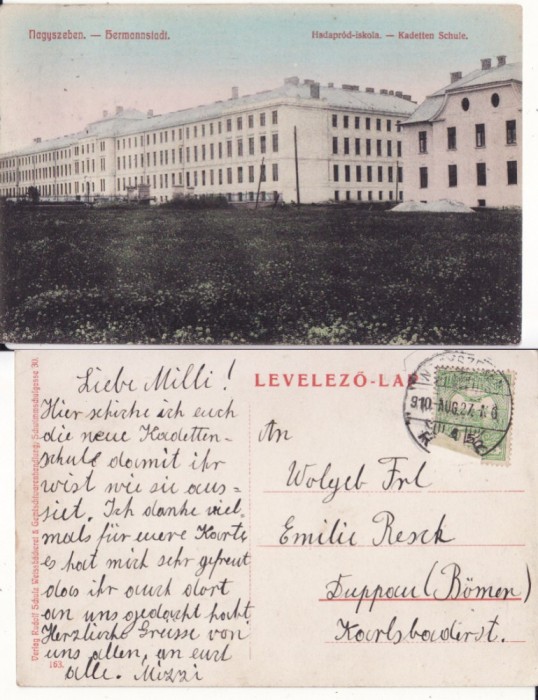 Nagyszeben. — Hermannstadt.
Hadapród-iskola. — Kadetten Schule.
Liebe Milli!
Hier schicke ich euch
die neue Kadetten-
schule damit ihr
wist wie sie aus=
siet. Ich danke viel
mals für euere Karte
es hat mich sehr gefreut
das ihr auch dort
an uns gedacht habt
Herzliche Grusse von
uns allen, an euch
alle. Mizzi
Verlag Rudolf Schulz Weissbäckerei & Gemischtwarenhandlung Schwimmschulgasse 30.
163.
LEVELEZŐ-LAP
910 AUG. 27
An
Wolgeb Frl
Emilie Resck
Duppau (Bömen)
Karlsbaderst.